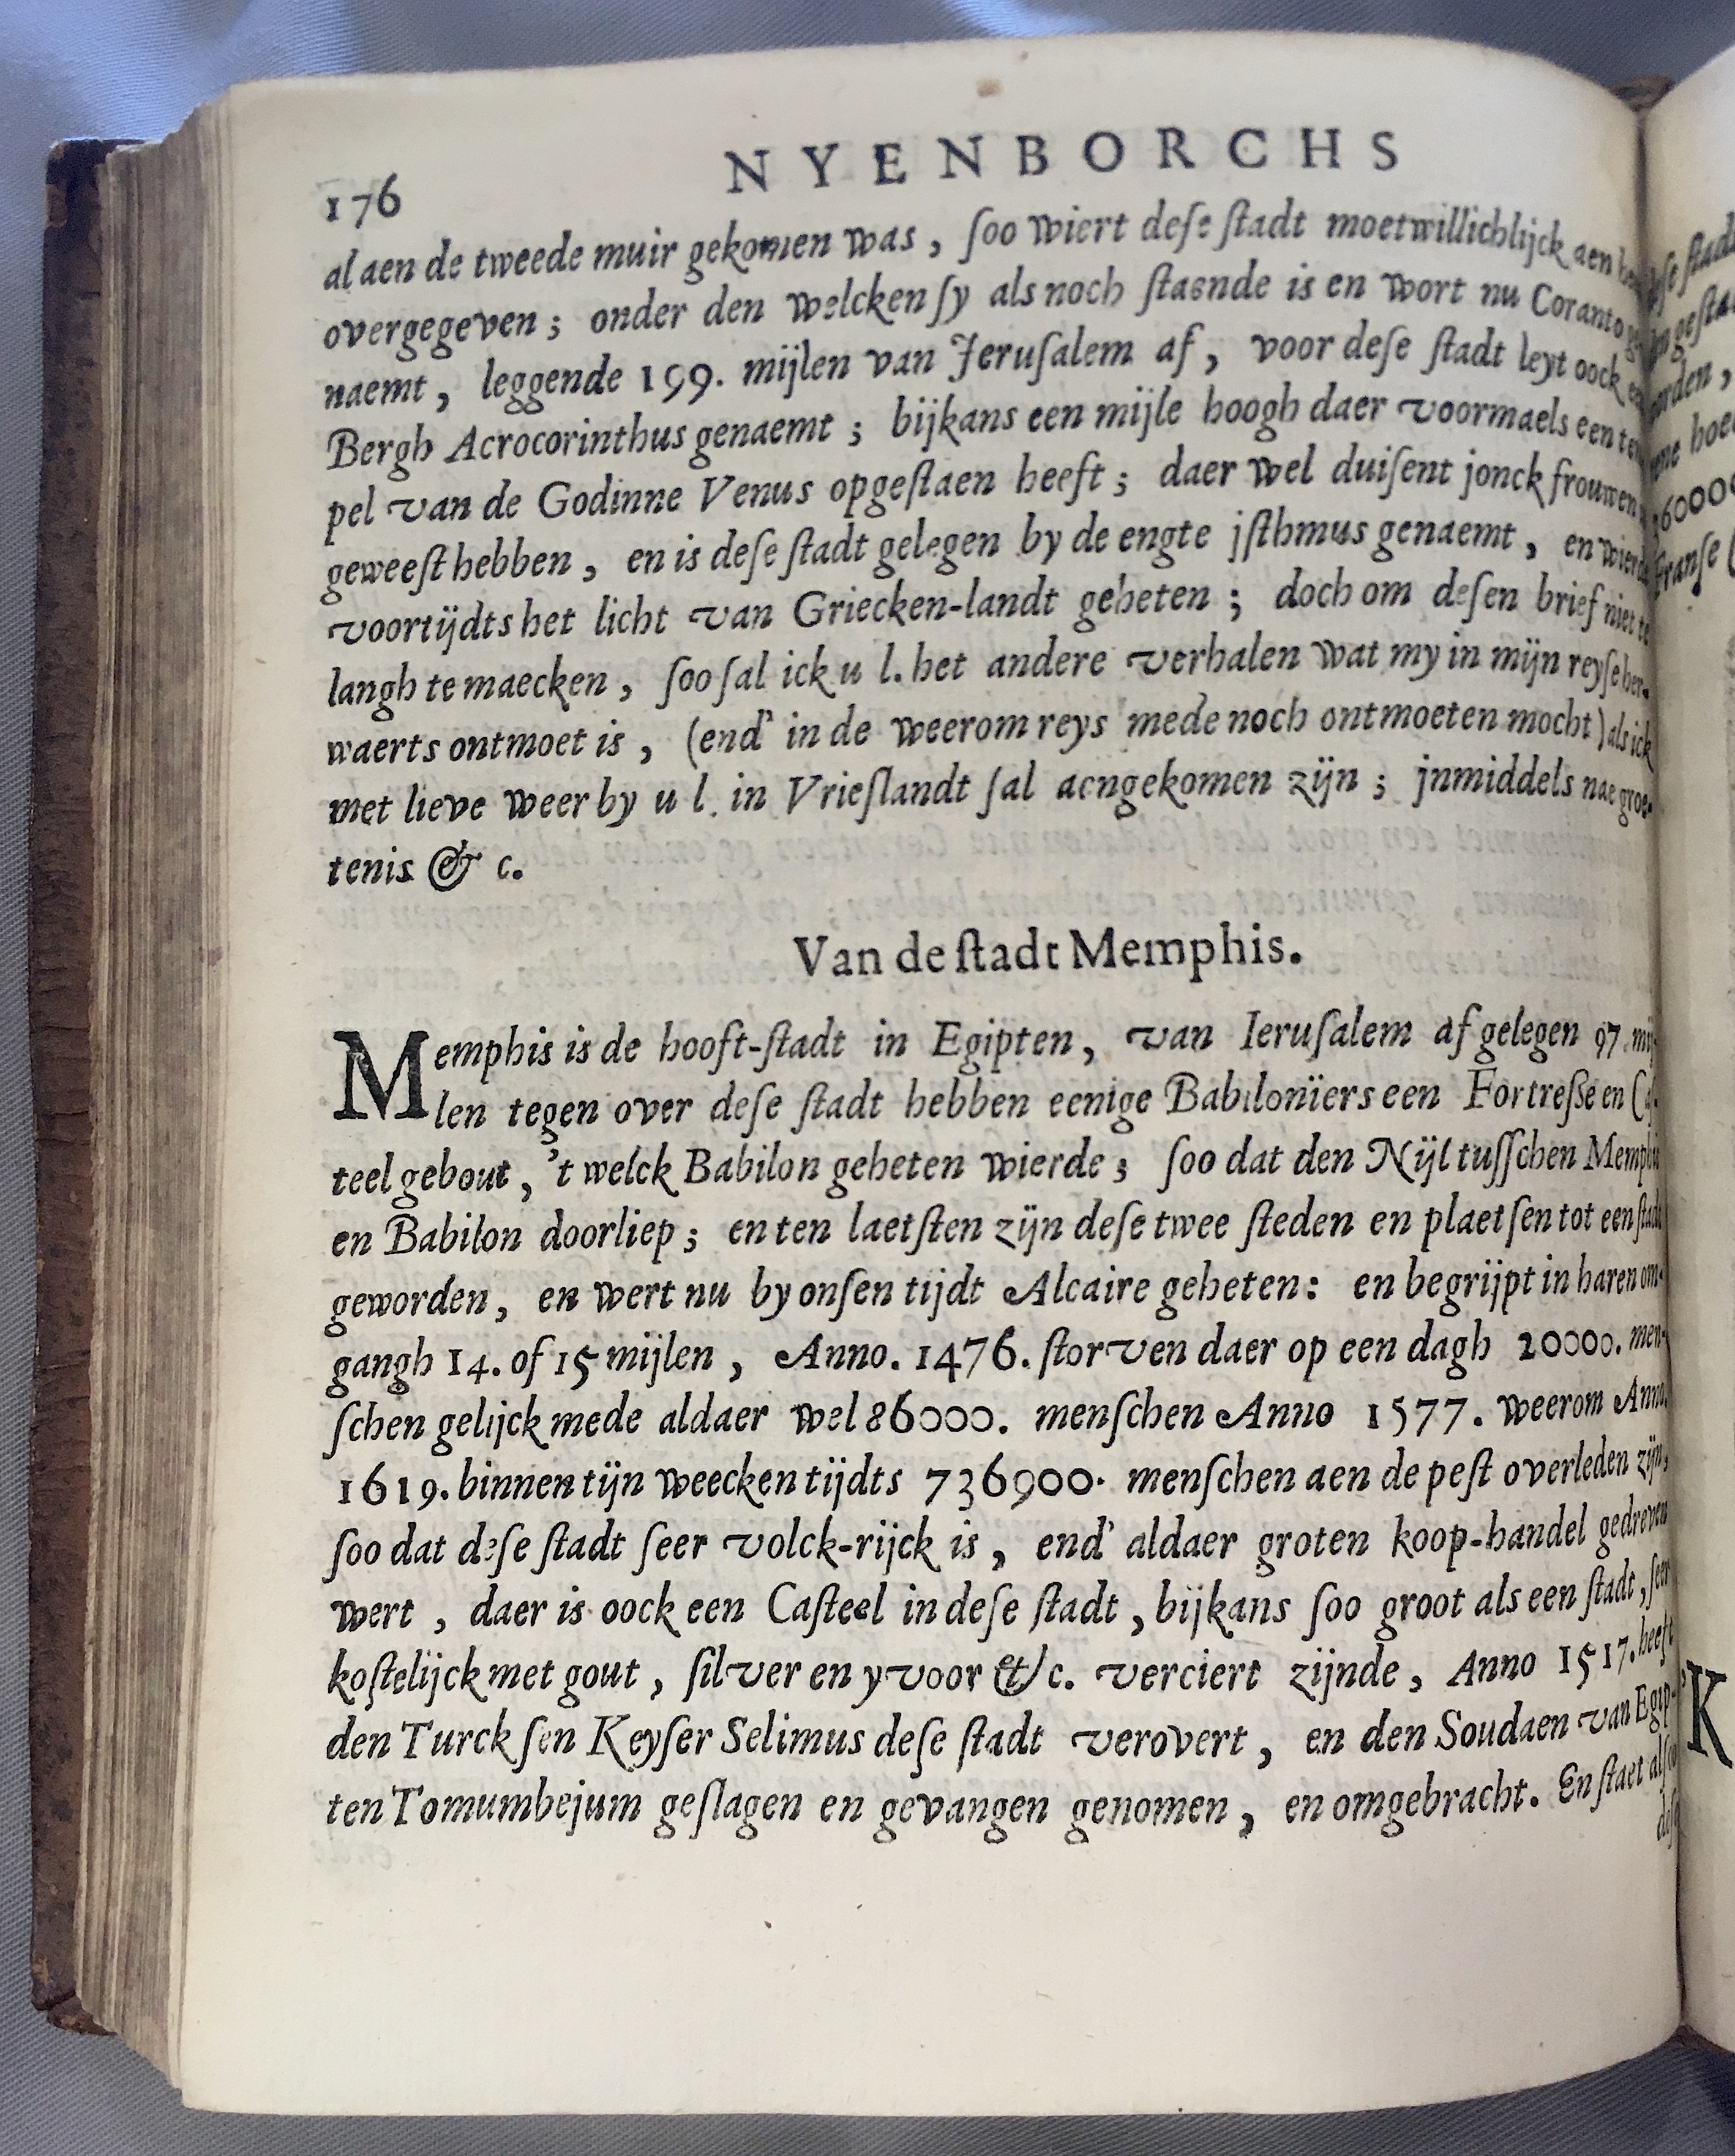 176 NYENBORCHS
al aen de tweede muir gekomen was, ſoo wiert deſe ſtadt moetwillichlijck aen
overgegeven; onder den welcken ſy als noch ſtaende is en wort nu Coranto ge
naemt, leggende 199. mijlen van Jeruſalem af, voor deſe ſtadt leyt oock
Bergh Acrocorinthus genaemt; bijkans een mijle hoogh daer voormaels een tem
pel van de Godinne Venus opgeſtaen heeft; daer wel duiſent jonck frouwen
geweeſt hebben, en is deſe ſtadt gelegen by de engte jſthmus genaemt, en wierde
voortijdts het licht van Griecken-landt geheten; doch om deſen brief niet te
langh te maecken, ſoo ſal ick u l. het andere verhalen wat my in mijn reyſe her-
waerts ontmoet is, (end' in de weerom reys mede noch ontmoeten mocht) als ick
met lieve weer by u l. in Vrieſlandt ſal aengekomen zijn; jnmiddels nae groe-
tenis & c.
Van de ſtadt Memphis.
Memphis is de hooft-ſtadt in Egipten, van Ieruſalem af gelegen 97. mij-
len tegen over deſe ſtadt hebben eenige Babilonïers een Fortreſſe en Caſ-
teel gebout, 't welck Babilon geheten wierde; ſoo dat den Nijl tuſſchen Memphis
en Babilon doorliep; en ten laetſten zijn deſe twee ſteden en plaetſen tot een ſtadt
geworden, en wert nu by onſen tijdt Alcaire geheten: en begrijpt in haren om-
gangh 14. of 15 mijlen, Anno. 1476. ſtorven daer op een dagh 20000. men-
ſchen gelijck mede aldaer wel 86000. menſchen Anno 1577. weerom Anno.
1619. binnen tijn weecken tijdts 736900. menſchen aen de peſt overleden zijn,
ſoo dat deſe ſtadt ſeer volck-rijck is, end' aldaer groten koop-handel gedreven
wert, daer is oock een Caſteel in deſe ſtadt, bijkans ſoo groot als een ſtadt, ſeer
koſtelijck met gout, ſilver en yvoor &c. verciert zijnde, Anno 1517. heeft
den Turck ſen Keyſer Selimus deſe ſtadt verovert, en den Soudaen van Egip-
ten Tomumbejum geſlagen en gevangen genomen, en omgebracht. En ſtaet alſoo
deſe